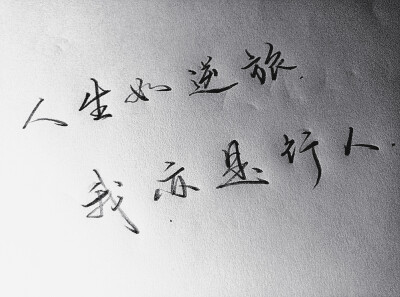 人生如逆旅.
我亦是行人.